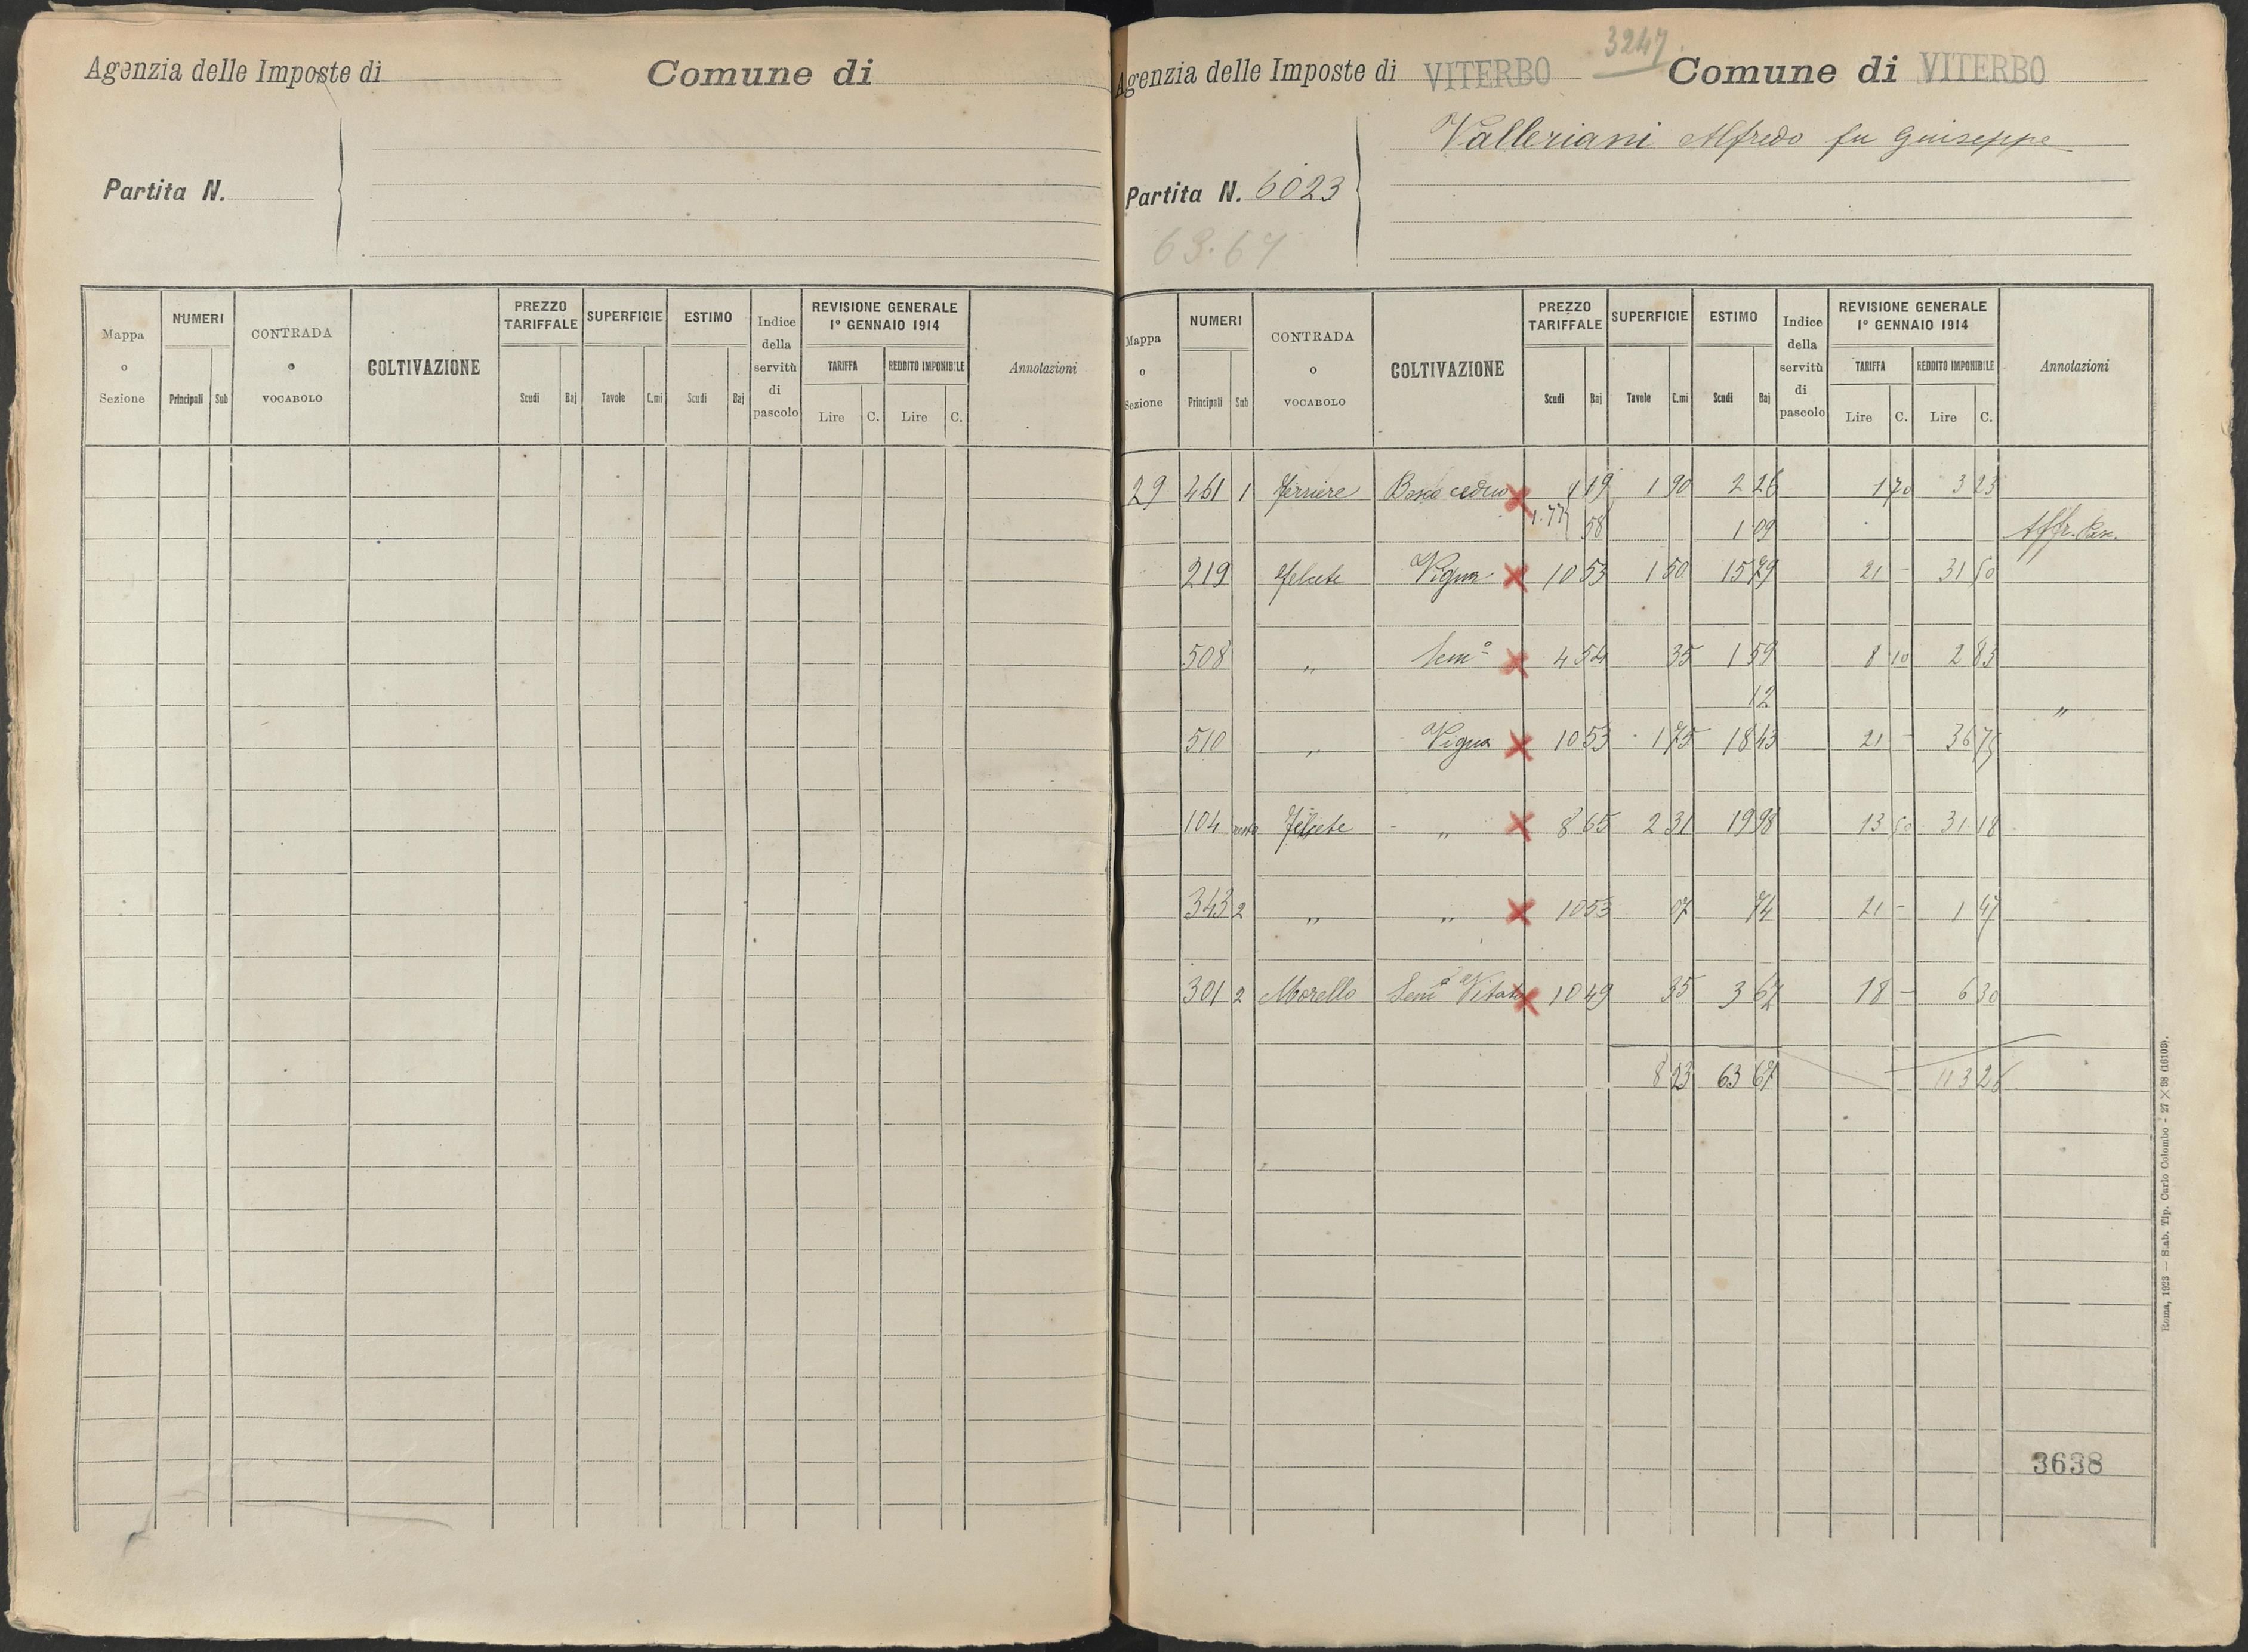 Agenzia delle Imposte di
Comune di
Partita N.
Mappa o Sezione
NUMERI
Principali Sub
CONTRADA o VOCABOLO
COLTIVAZIONE
PREZZO TARIFFALE
Scudi Baj
SUPERFICIE
Tavole C.mi
ESTIMO
Scudi Baj
Indice della servitù di pascolo
REVISIONE GENERALE
1° GENNAIO 1914
TARIFFA REDDITO IMPONIBILE
Lire C. Lire C.
Annotazioni
3247
Agenzia delle Imposte di VITERBO Comune di VITERBO
Valleriani Alfredo fu Giuseppe
Partita N. 6023
63.67
Mappa o Sezione
NUMERI
Principali Sub
CONTRADA o VOCABOLO
COLTIVAZIONE
PREZZO TARIFFALE
Scudi Baj
SUPERFICIE
Tavole C.mi
ESTIMO
Scudi Baj
Indice della servitù di pascolo
REVISIONE GENERALE
1° GENNAIO 1914
TARIFFA REDDITO IMPONIBILE
Lire C. Lire C.
Annotazioni
29 461 1 Ferriere Bosco ceduo 1 19 1 90 2 26 1 70 3 23
1.77 58 1 09 Affr. Pas.
219 Felcete Vigna 10 53 1 50 15 79 21 - 31 50
508 " Sem° 4 54 35 1 59 8 10 2 83
12 "
510 " Vigna 10 53 1 75 18 43 21 - 36 75
104 resto Felcete " 8 65 2 31 19 98 13 50 31 18
343 2 " " 10 53 07 74 21 - 1 47
301 2 Morello Sem° Vitato 10 49 35 3 67 18 - 6 30
8 23 63 67 113 26
3638
Roma, 1923 — Stab. Tip. Carlo Colombo - 27 × 38 (16103).